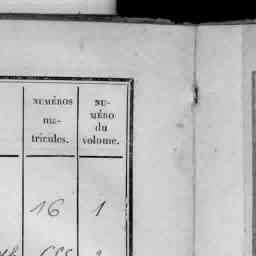 NUMÉROS
ma-
tricules.
NU-
MÉRO
du
volume.
16
1